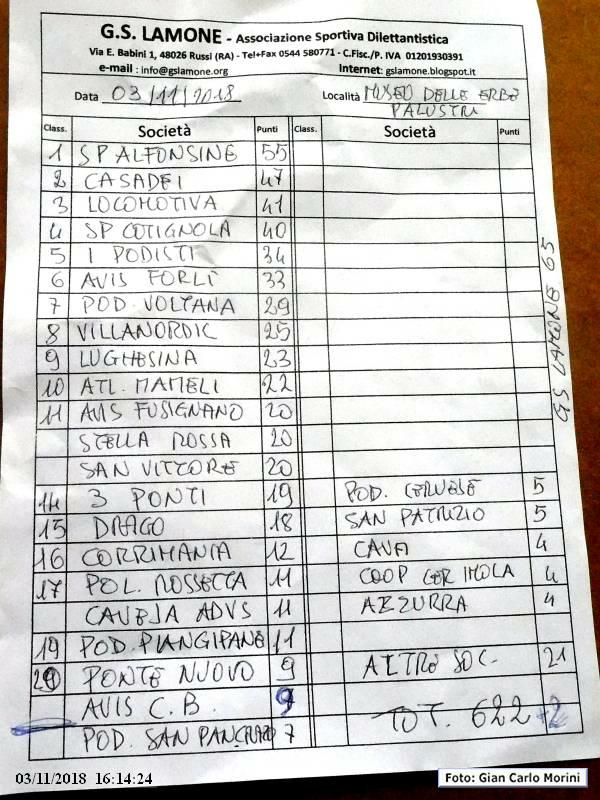 G.S. LAMONE - Associazione Sportiva Dilettantistica
Via E. Babini 1, 48026 Russi (RA) - Tel+Fax 0544 580771 - C.Fisc./P. IVA 01201930391
e-mail : info@gslamone.org Internet: gslamone.blogspot.it
Data 03/11/2018 Località MUSEO DELLE ERBE
PALUSTRI
Class. Società Punti Class. Società Punti
1 SP ALFONSINE 55
2 CASADEI 47
3 LOCOMOTIVA 41
4 SP COTIGNOLA 40
5 I PODISTI 34
6 AVIS FORLÌ 33
7 POD. VOLTANA 29
8 VILLANORDIC 25
9 LUGHESINA 23
10 ATL. MAMELI 22
11 AVIS FUSIGNANO 20
STELLA ROSSA 20
SAN VITTORE 20
14 3 PONTI 19 POD. CERVESE 5
15 DRAGO 18 SAN PATRIZIO 5
16 CORRIMANIA 12 CAVA 4
17 POL. ROSSETTA 11 COOP CER IMOLA 4
CAVEJA ADVS 11 AZZURRA 4
19 POD. PIANGIPANE 11
20 PONTE NUOVO 9 ALTRE SOC. 21
AVIS C.B. 9 TOT. 622 +2
POD. SAN PANCRAZIO 7
GS LAMONE 65
03/11/2018 16:14:24
Foto: Gian Carlo Morini